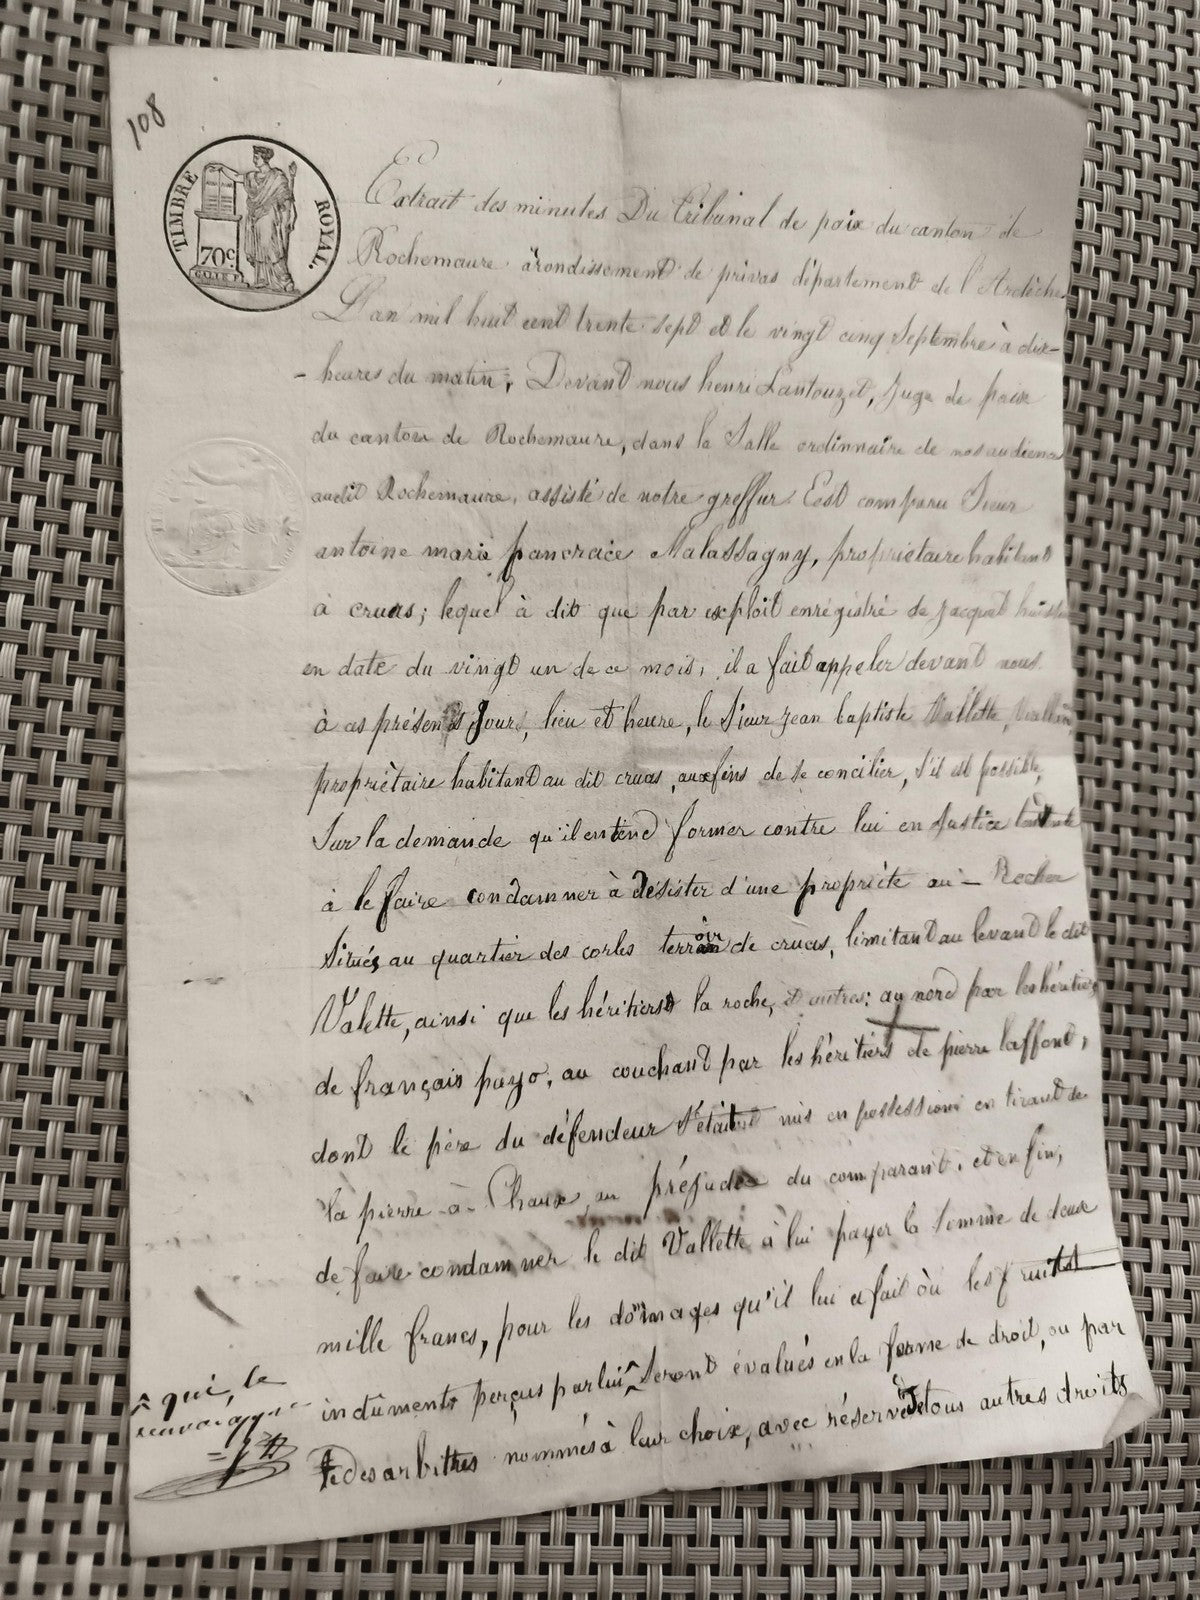 108
TIMBRE ROYAL.
70c.
Extrait des minutes Du Tribunal de paix du canton de
Rochemaure arondissement de privas département de l'Ardèche
L'an mil huit cent trente sept et le vingt cinq Septembre à dix-
- heures du matin, Devant nous henri Lantouzet, Juge de paix
du canton de Rochemaure, dans la Salle ordinnaire de nos audiences
audit Rochemaure, assisté de notre greffier Est comparu Sieur
antoine marie pancrace Malassagny, propriétaire habitant
à cruas; lequel à dit que par exploit enrégistré de Jacquet huissier
en date du vingt un de ce mois, il a fait appeler devant nous
à ces présents Jours, lieu et heure, le Sieur jean baptiste Vallette,
propriètaire habitant au dit cruas, aux fins de se concilier, s'il est possible,
Sur la demande qu'il entend former contre lui en Justice tendente
à le faire condamner à désister d'une propriéte au - Rocher
Situés au quartier des corles terroir de cruas, limitant au levant le dit
Valette, ainsi que les héritiers la roche, et autres; au nord par les héritiers
de françois payo, au couchant par les héritiers de pierre laffont,
dont le père du défendeur s'étaitt mis en possession en tirant de
la pierre - à - Chaux, au préjudice du comparant. et enfin,
de faire condamner le dit Vallette à lui payer la Somme de deux
mille francs, pour les dommages qu'il lui a fait où les fruits
indûments perçus par lui ^ Seront évalués en la forme de droit, ou par
des arbitres nommés à leur choix, avec réserve de tous autres droits
^ qui, le